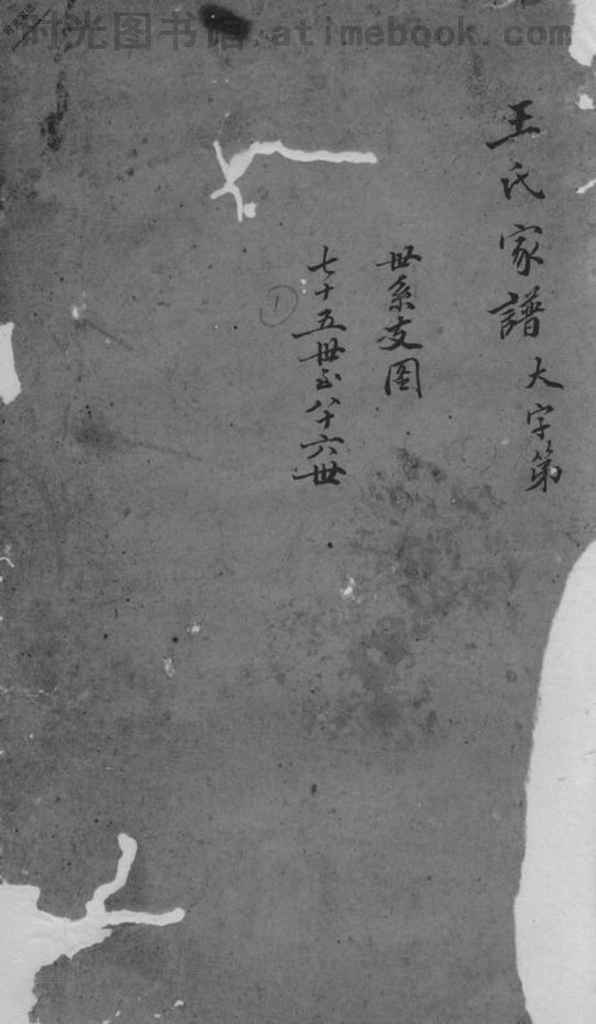 时光图书馆.atimebook.com
王氏家譜 大字第
世系支图
七十五世至八十六世
①